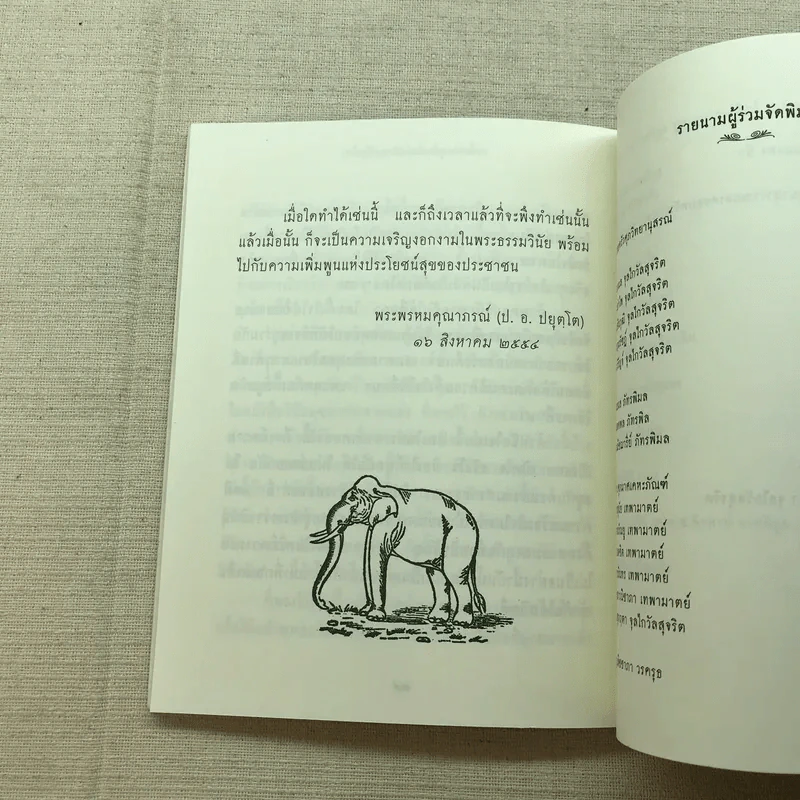 เมื่อใดทำได้เช่นนี้ และก็ถึงเวลาแล้วที่จะพึงทำเช่นนั้น
แล้วเมื่อนั้น ก็จะเป็นความเจริญงอกงามในพระธรรมวินัย พร้อม
ไปกับความเพิ่มพูนแห่งประโยชน์สุขของประชาชน
พระพรหมคุณาภรณ์ (ป. อ. ปยุตฺโต)
๑๖ สิงหาคม ๒๕๕๔
รายนามผู้ร่วมจัดพิม
จุลโกวัลสุจริต
จุลโกวัลสุจริต
จุลโกวัลสุจริต
จุลโกวัลสุจริต
จุลโกวัลสุจริต
ภัทรพิมล
ภัทรพิล
ภัทรพิมล
เทพามาตย์
เทพามาตย์
เทพามาตย์
เทพามาตย์
เทพามาตย์
จุลโกวัลสุจริต
วรครุธ